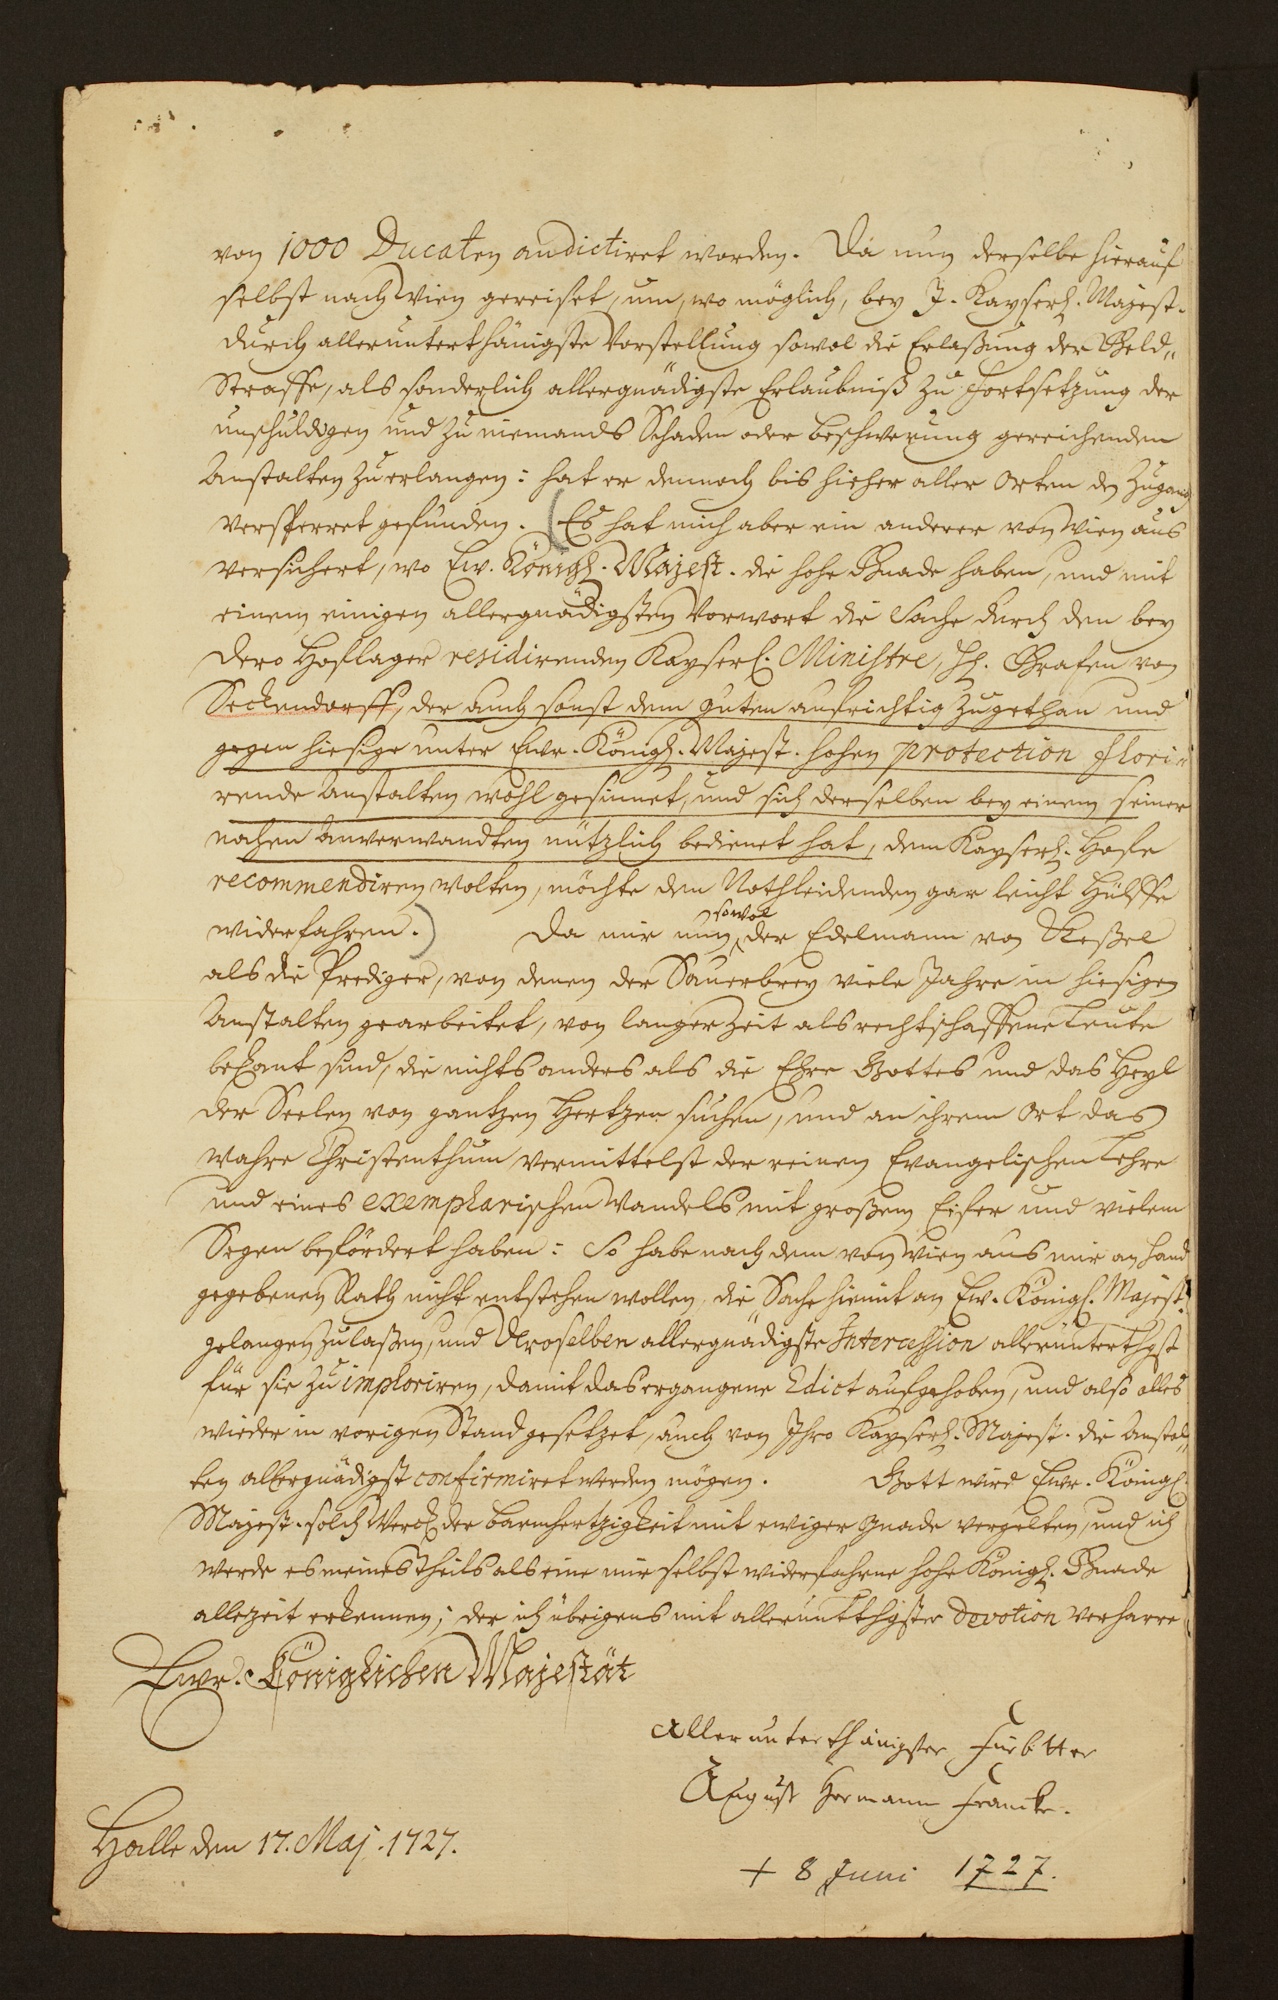 von 1000 Ducaten andictiret worden. Da nun derselbe hierauf
selbst nach Wien gereiset, um, wo möglich, bey J. Kayserl. Majest.
durch allerunterthänigste Vorstellung sowol die Erlaßung der Geld„
Straffe, als sonderlich allergnädigste Erlaubniß zu Fortsetzung der
unschuldigen und zu niemands Schaden oder Beschwerung gereichenden
Anstalten zu erlangen: hat er dennoch bis hieher aller Orten den Zugang
versperret gefunden. (Es hat mich aber ein anderer von Wien aus
versichert, wo Ew. Königl. Majest. die hohe Gnade haben, und mit
einem einigen allergnädigsten Vorwort die Sache durch den bey
Dero Hoflager residirenden Kayserl. Ministre, H. Grafen von
Seckendorff, der auch sonst dem Guten aufrichtig zugethan und
gegen hiesige unter Ewr. Königl. Majest. hohen protection flori„
rende Anstalten wohl gesinnet, und sich derselben bey einem seiner
nahen Anverwandten nützlich bedienet hat, dem Kayserl. Hofe
recommendiren wolten, möchte den Nothleidenden gar leicht Hülffe
widerfahren.) Da mir nun sowol der Edelmann von
als die Prediger, von denen der Sauerbrey viele Jahre in hiesigen
Anstalten gearbeitet, von langer Zeit als rechtschaffene Leute
bekant sind, die nichts anders als die Ehre Gottes und das Heyl
der Seelen von gantzen Hertzen suchen, und an ihrem Ort das
wahre Christenthum vermittelst der reinen Evangelischen Lehre
und eines exemplarischen Wandels mit großem Eifer und vielem
Segen befördert haben: So habe nach dem von Wien aus mir an Hand
gegebenen Rath nicht entstehen wollen, die Sache hiemit an Ew. Königl. Majest.
gelangen zu laßen, und Deroselben allergnädigste Intercession allerunterthgst
für sie zu imploriren, damit das ergangene Edict aufgehoben, und also alles
wieder in vorigen Stand gesetzet, auch von Ihro Kayserl. Majest. die Anstal„
ten allergnädigst confirmiret werden mögen. Gott wird Ewr. Königl.
Majest. solch Werck der Barmhertzigkeit mit ewiger Gnade vergelten, und ich
werde es meines Theils als eine mir selbst widerfahrne hohe Königl. Gnade
allezeit erkennen; der ich übrigens mit allerunterthgster Devotion verharre
Ewr. Königlichen Majestät
allerunterthänigster Fürbitter
August Hermann Francke.
Halle den 17. Maj. 1727.
+ 8 Juni 1727.